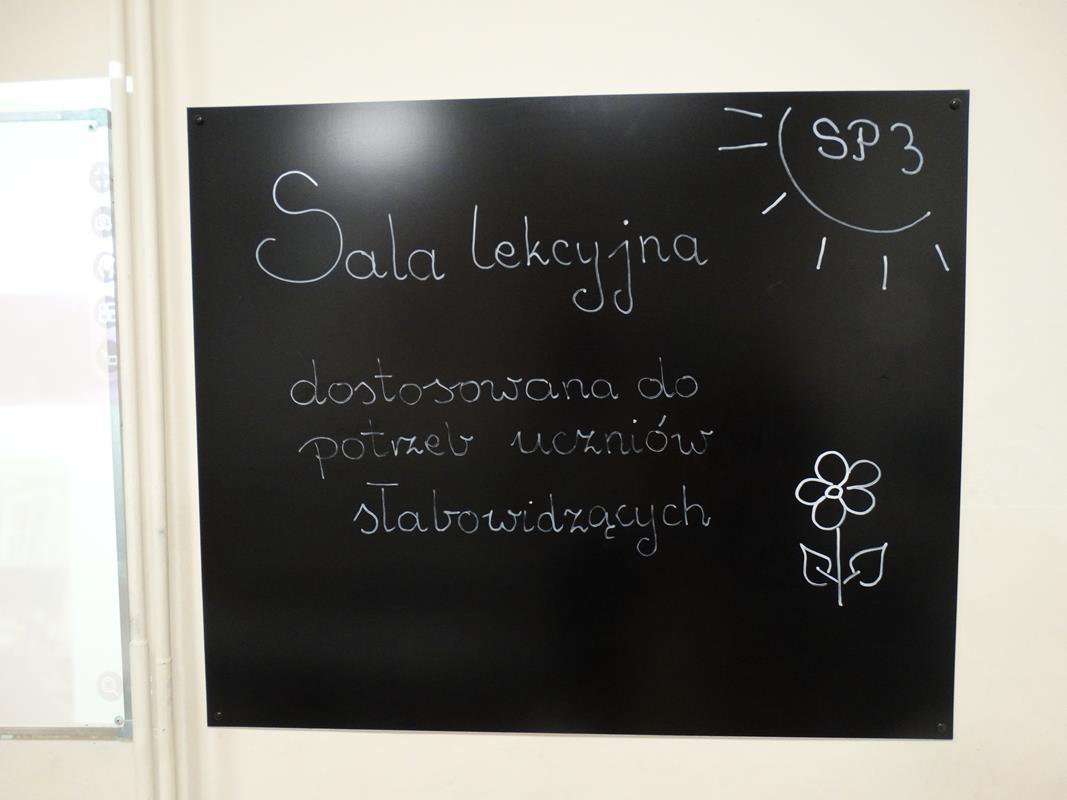 SP 3
Sala lekcyjna
dostosowana do
potrzeb uczniów
słabowidzących